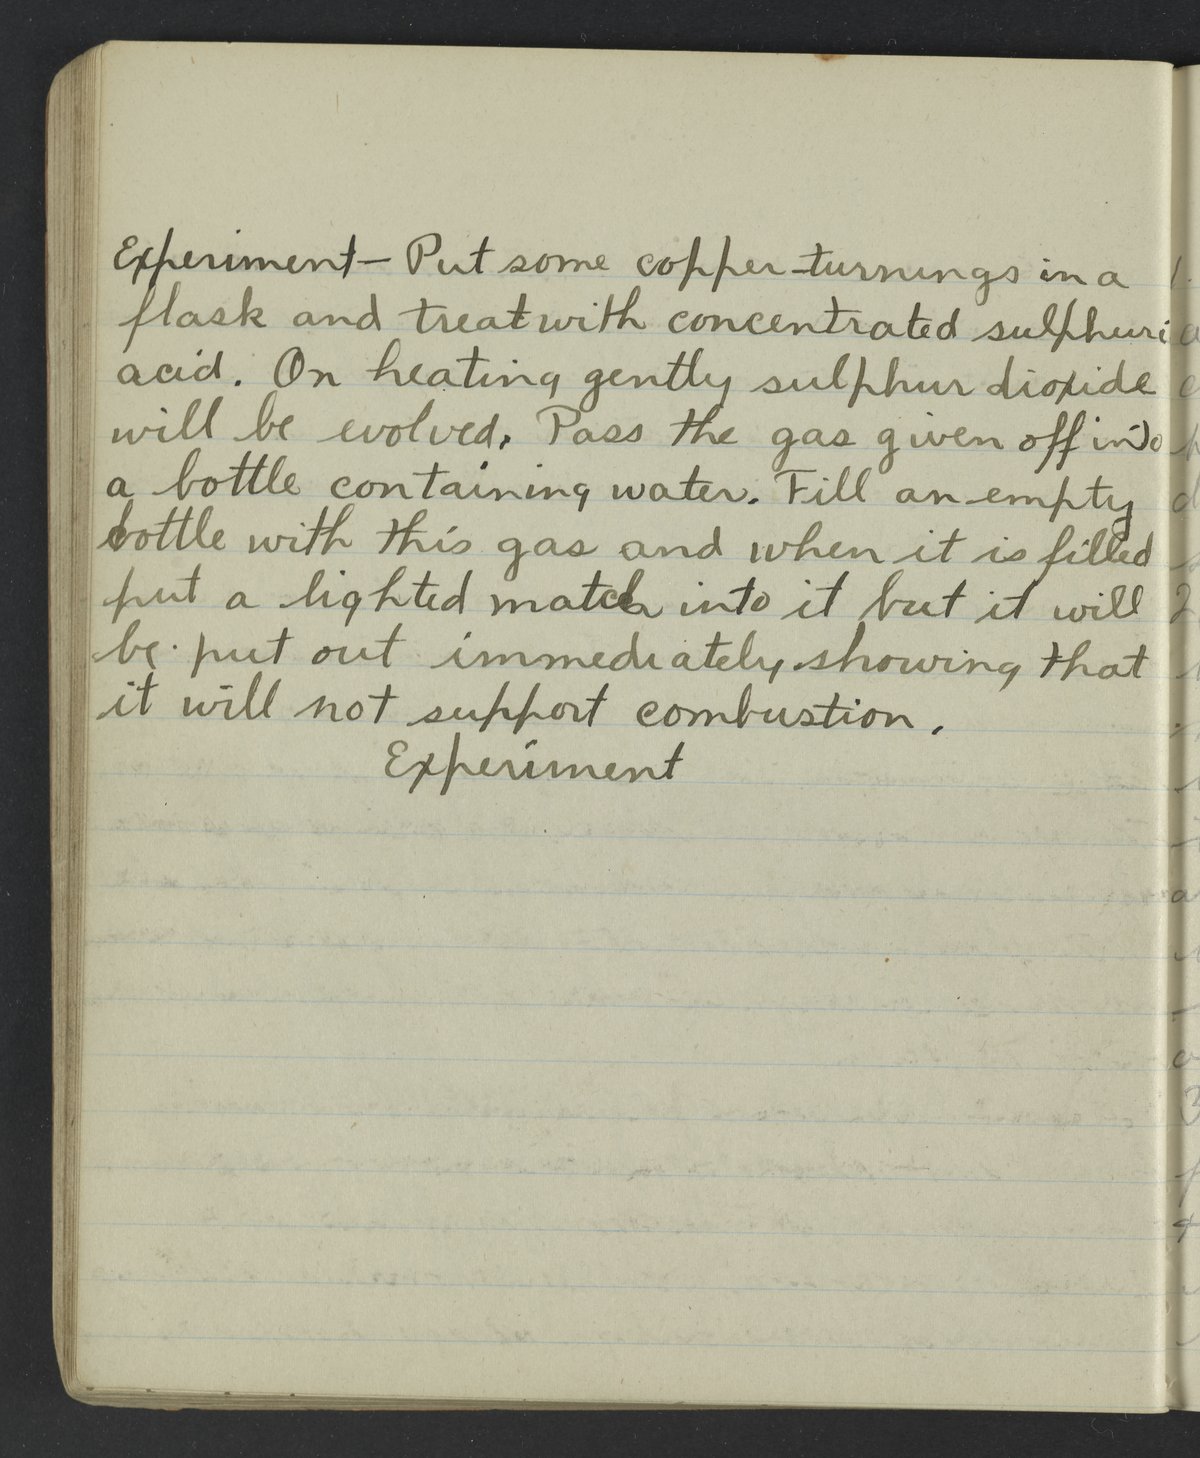 Experiment - Put some copper-turnings in a
flask and treat with concentrated sulphuri
acid. On heating gently sulphur dioxide
will be evolved. Pass the gas given off into
a bottle containing water. Fill an empty
bottle with this gas and when it is filled
put a lighted match into it but it will
be put out immediately showing that
it will not support combustion.
Experiment